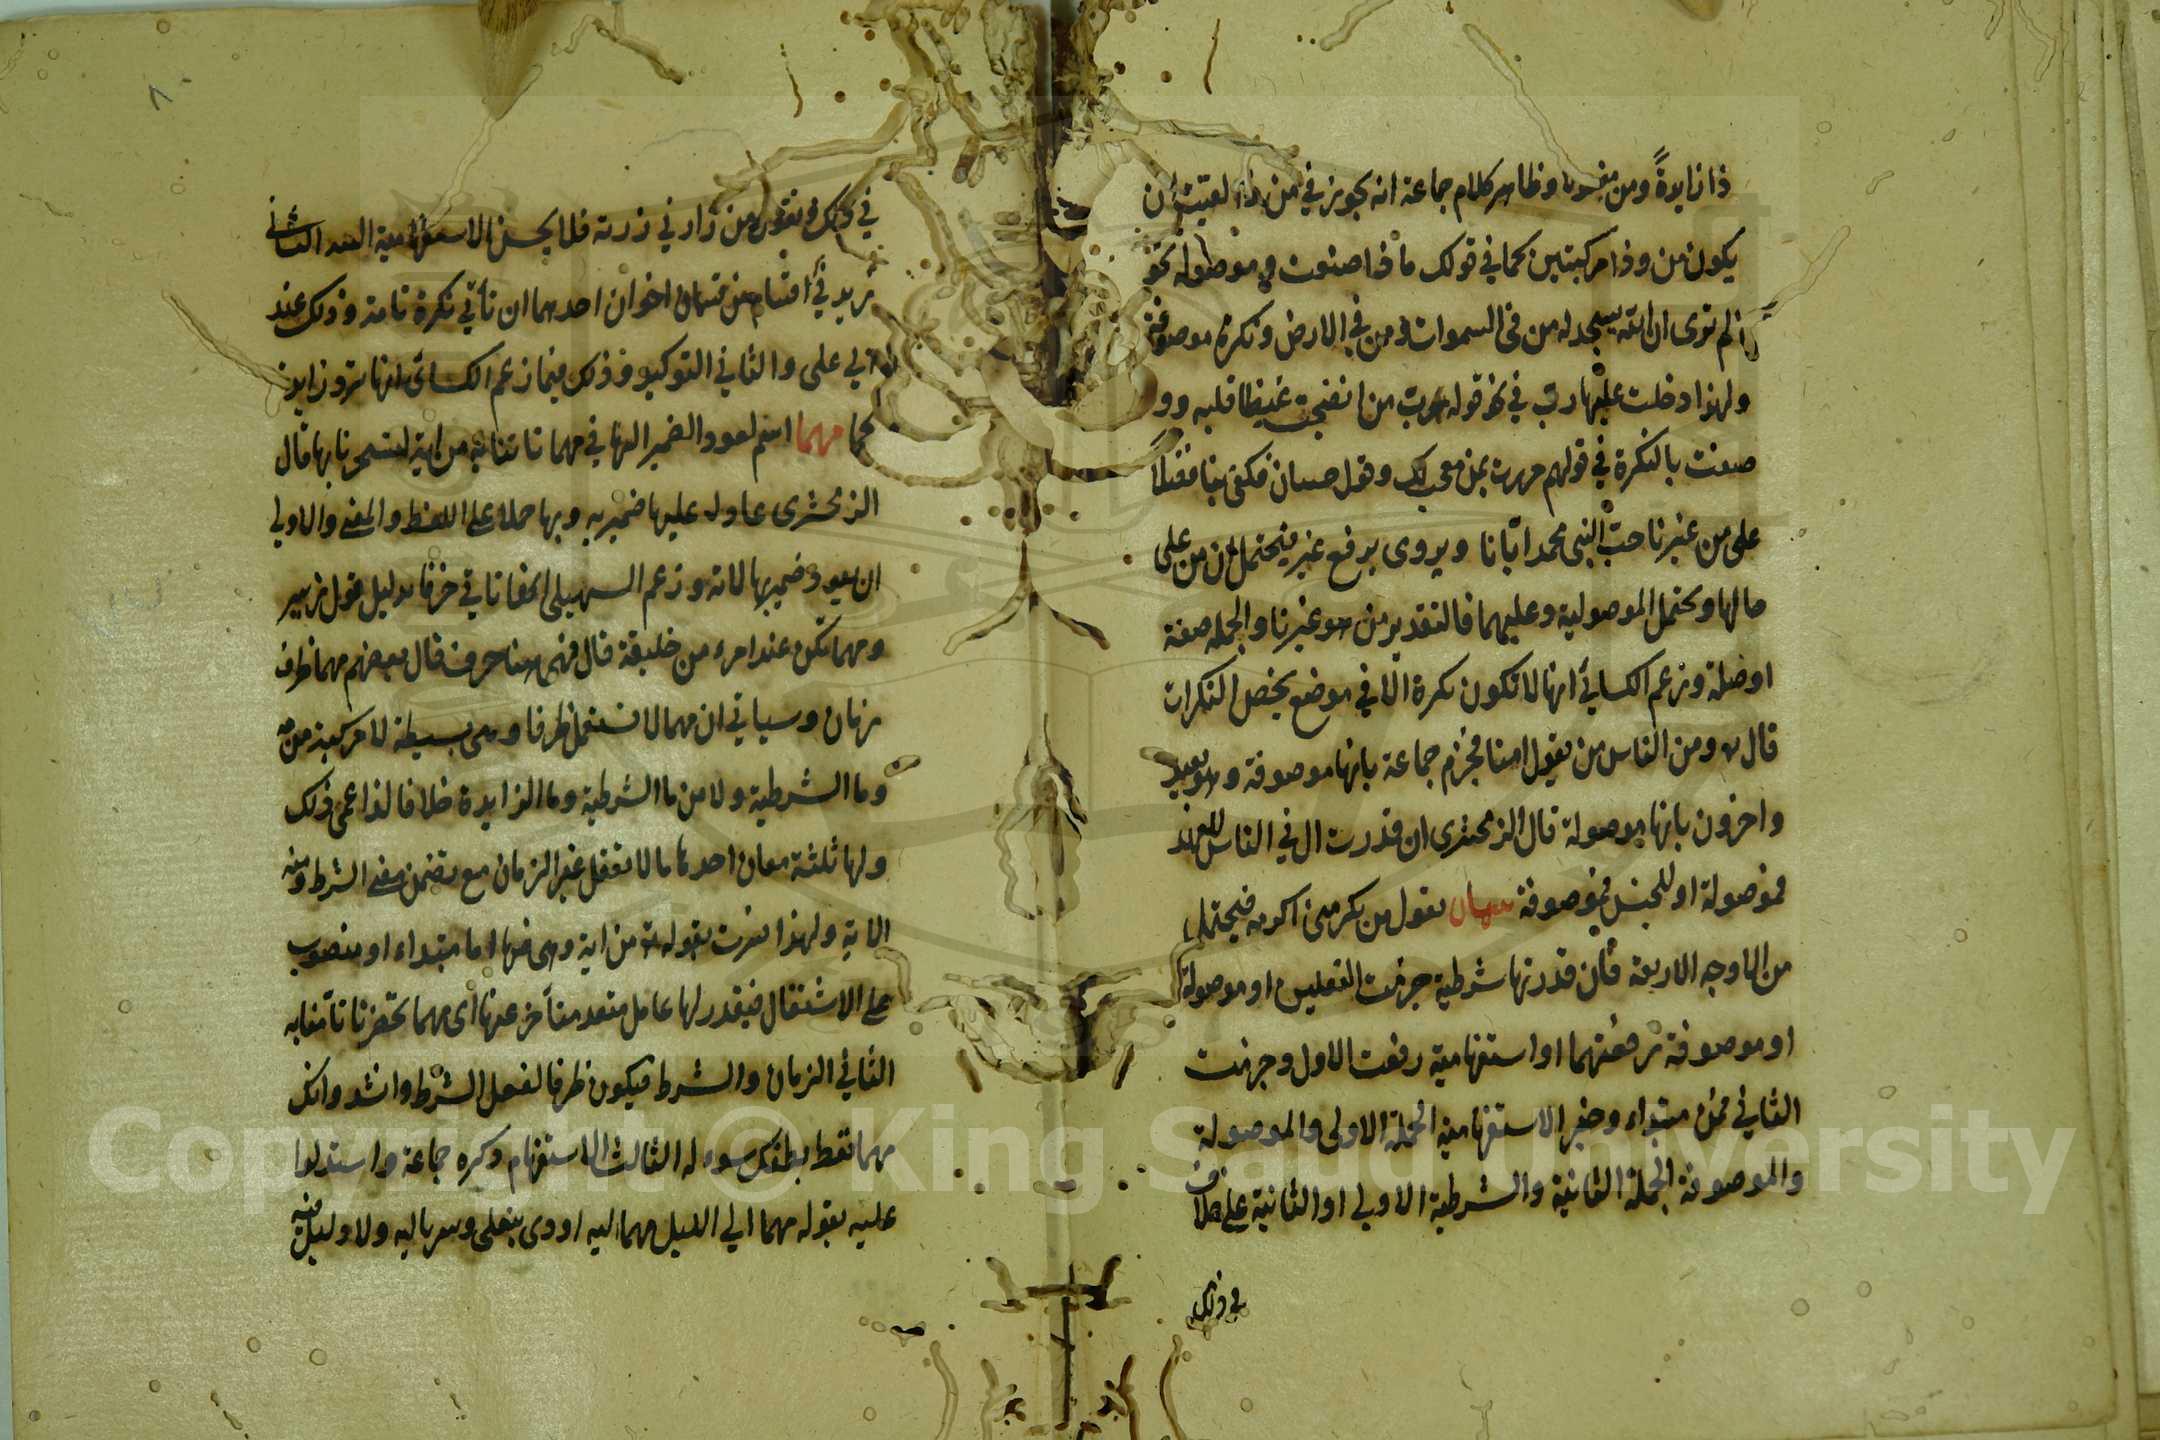 ذا زايدةً ومن مفعولا وظاهر كلام جماعة انه يجوز في من ذا لقيت ان
يكون من وذا مركبتين كما في قولك ما ذا صنعت وموصولة نحو
الم ترى ان الله يسجد له من في السموات ومن في الارض ونكرة موصوفة
ولهذا دخلت عليها ربّ في نحو قوله رب من انضجت غيظا قلبه وو
صفت بالنكرة في قولهم مررت بمن معجب لك وقول حسان فكفى بنا فضلاً
على من غيرنا حبّ النبي محمد ايّانا ويروى برفع غير فيحتمل ان من على
حالها ويحتمل الموصولية وعليهما فالتقدير من هو غيرنا والجملة صفة
او صلة وزعم الكسائي انها لا تكون نكرة الا في موضع يخص النكرات
قال ومن الناس من يقول امنا فجزم جماعة بانها موصوفة وهو بعيد
واخرون بانها موصولة قال الزمخشرى ان قدرت ال في الناس للعهد
فموصولة او للجنس فموصوفة تقول من يكرمنى اكرمه فيحتمل
من الاوجه الاربعة فان قدرتها شرطية جزمت الفعلين او موصولة
او موصوفة رفعتهما او استفهامية رفعت الاول وجزمت
الثاني فمن مبتداء وخبر الاستفهامية الجملة الاولى والموصولة
والموصوفة الجملة الثانية والشرطية الاولي او الثانية على خلاف
في ذلك
في ذلك وتقول من زارني زرته فلا يحسن الاستفهامية الثاني
نزيد في اقسام من قسمان اخران احدهما ان تأتي نكرة تامة وذلك عند
ابي على والثاني التوكيد وذلك فيما زعم الكسائى انها ترد زايدة
كما مهما اسم لعود الضمير اليها في مهما تاتنا به من اية لتسحرنا بها قال
الزمخشرى عاد عليها ضمير به وبها حملا على اللفظ والمعنى والاولي
ان يعود ضمير بها لاية وزعم السهيلى انها تاتي حرفا بدليل قول زهير
ومهما تكن عند امرء من خليقة قال فهى هنا حرف قال بعضهم مهما ظرف
زمان وسياتي ان مهما لا تستعمل ظرفا وهى بسيطة لا مركبة من مه
وما الشرطية ولا من ما الشرطية وما الزايدة خلافا لزاعمى ذلك
ولها ثلثة معان احدها ما لا يعقل غير الزمان مع تضمن معنى الشرط ومنه
الاية ولهذا فسرت بقوله من اية وهى فيها اما مبتداء او منصوب
على الاشتغال فيقدر لها عامل متعد متأخر عنها اى مهما تحضرنا تأتنا به
الثاني الزمان والشرط فيكون ظرفا لفعل الشرط وانشد وانك
مهما تعط بطنك سوء له الثالث الاستفهام ذكره جماعة واستدلوا
عليه بقوله مهما لي الليل مهما ليه اودى بنعلى وسرباليه ولا دليل فيه